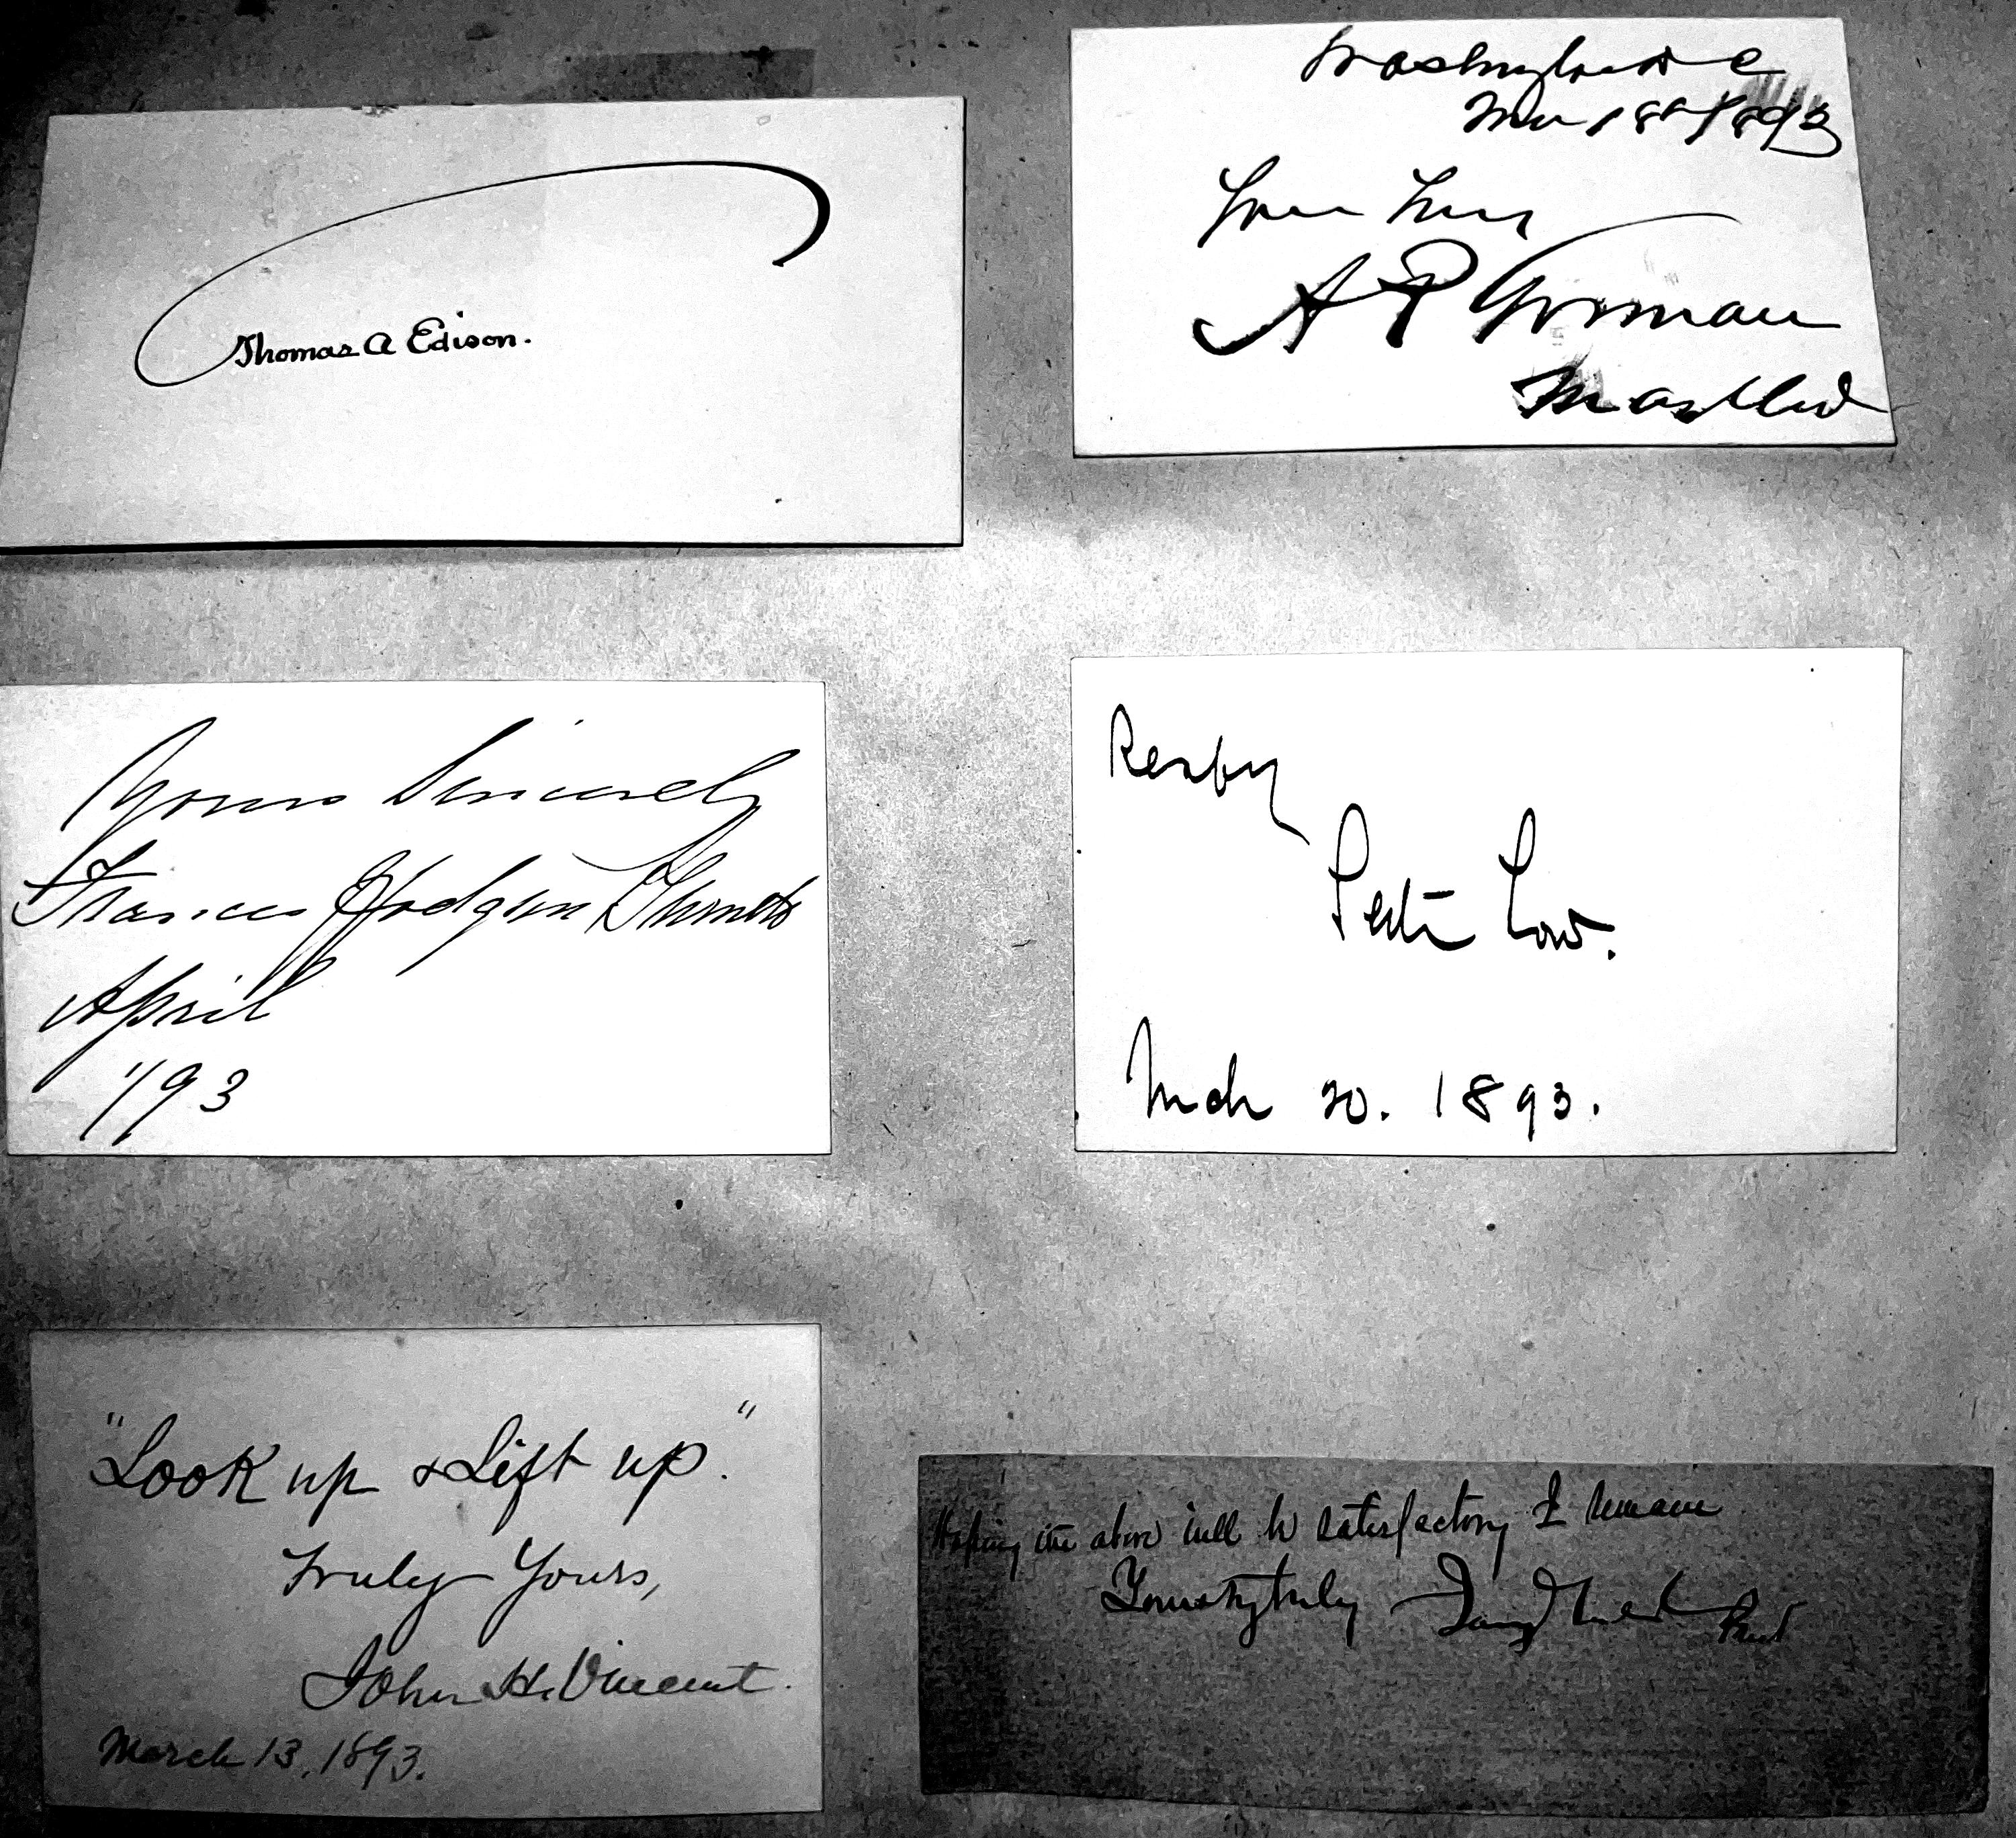 Thomas A Edison.
Washington D C
Mar 18th 1893
Yours Truly
A P Gorman
Maryland
Yours Sincerely
Frances Hodgson Burnett
April
1/93
Resply
Seth Low.
Mch 20. 1893.
"Look up & Lift up."
Truly Yours,
John H. Vincent.
March 13, 1893.
Hoping the above will be satisfactory I remain
Yours truly